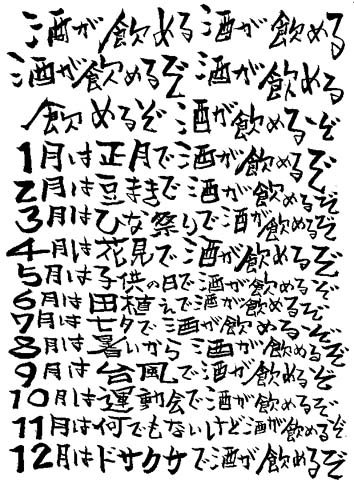 酒が飲める酒が飲める
酒が飲めるぞ酒が飲める
飲めるぞ酒が飲めるぞ
1月は正月で酒が飲めるぞ
2月は豆まきで酒が飲めるぞ
3月はひな祭りで酒が飲めるぞ
4月は花見で酒が飲めるぞ
5月は子供の日で酒が飲めるぞ
6月は田植えで酒が飲めるぞ
7月は七夕で酒が飲めるぞ
8月は暑いから酒が飲めるぞ
9月は台風で酒が飲めるぞ
10月は運動会で酒が飲めるぞ
11月は何でもないけど酒が飲めるぞ
12月はドサクサで酒が飲めるぞ